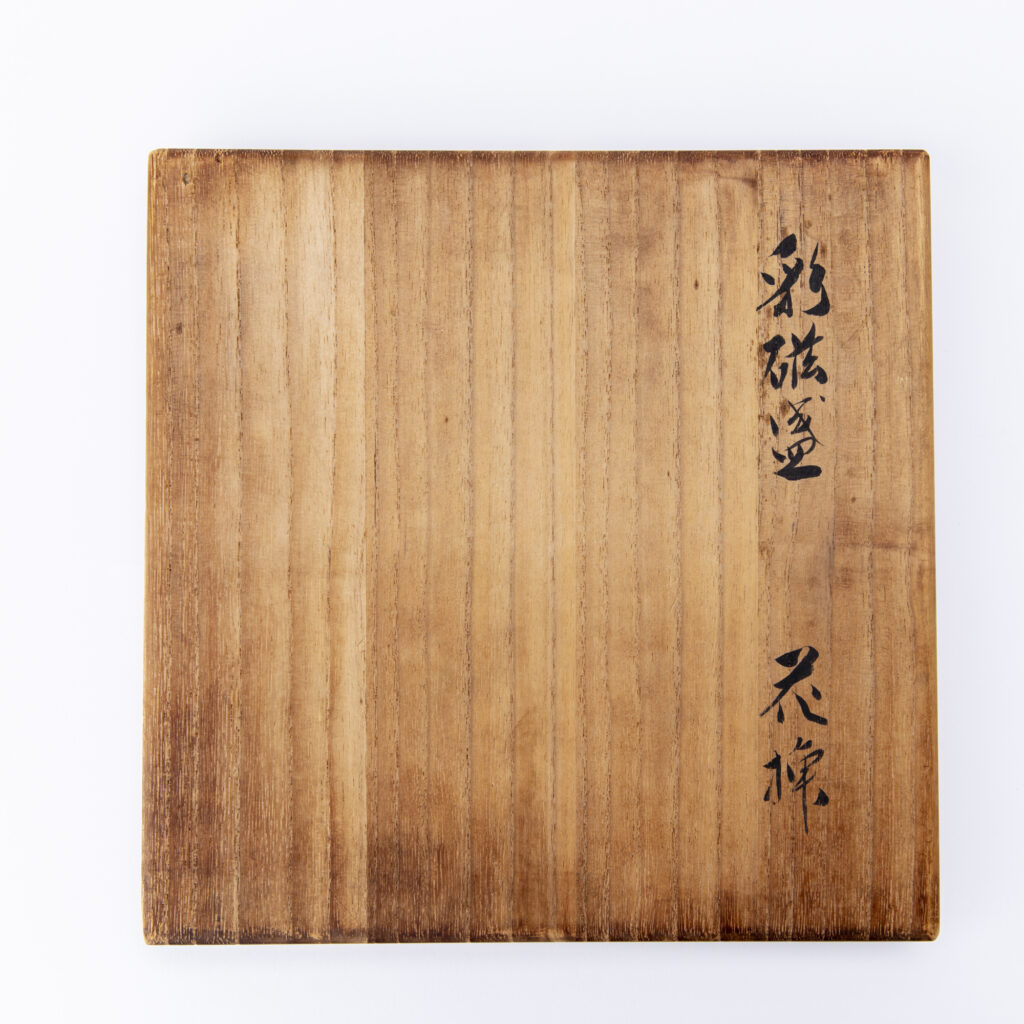 彩磁盛 花挿